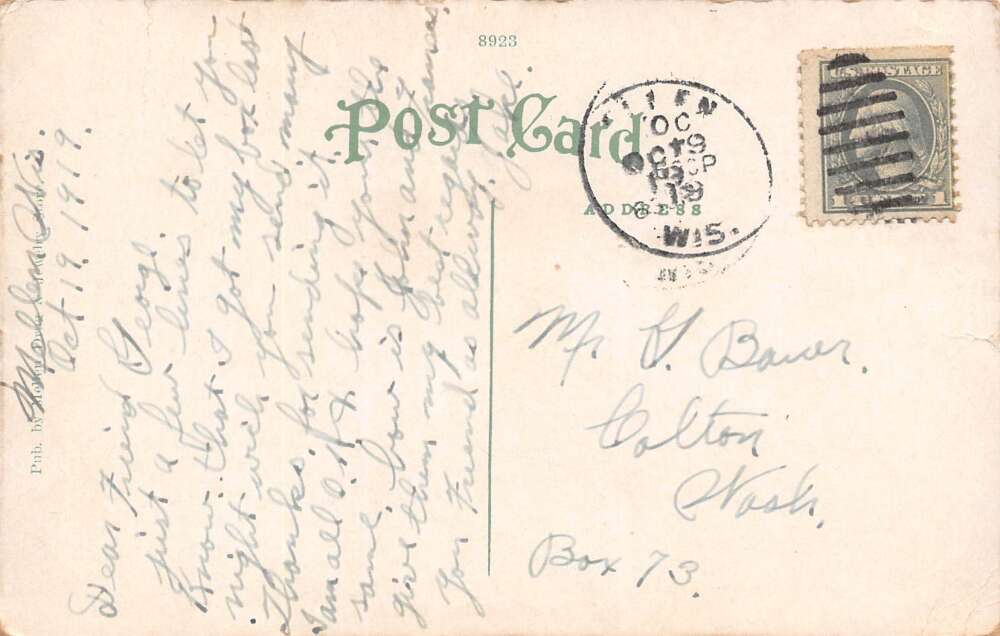 8923
Post Card
ADDRESS
U.S. POSTAGE
1
OC
WIS.
Mellen Wis.
Oct 19 1919.
Dear Friend George.
just a few lines to let you
know that I got my box last
night will you send many
Thanks for sending it
I am all O.K & hope you the
same. how is John and
give them my best regards
you Friend as allways
Mr G. Bauer.
Colton
Wash.
Box 73
Pub. by